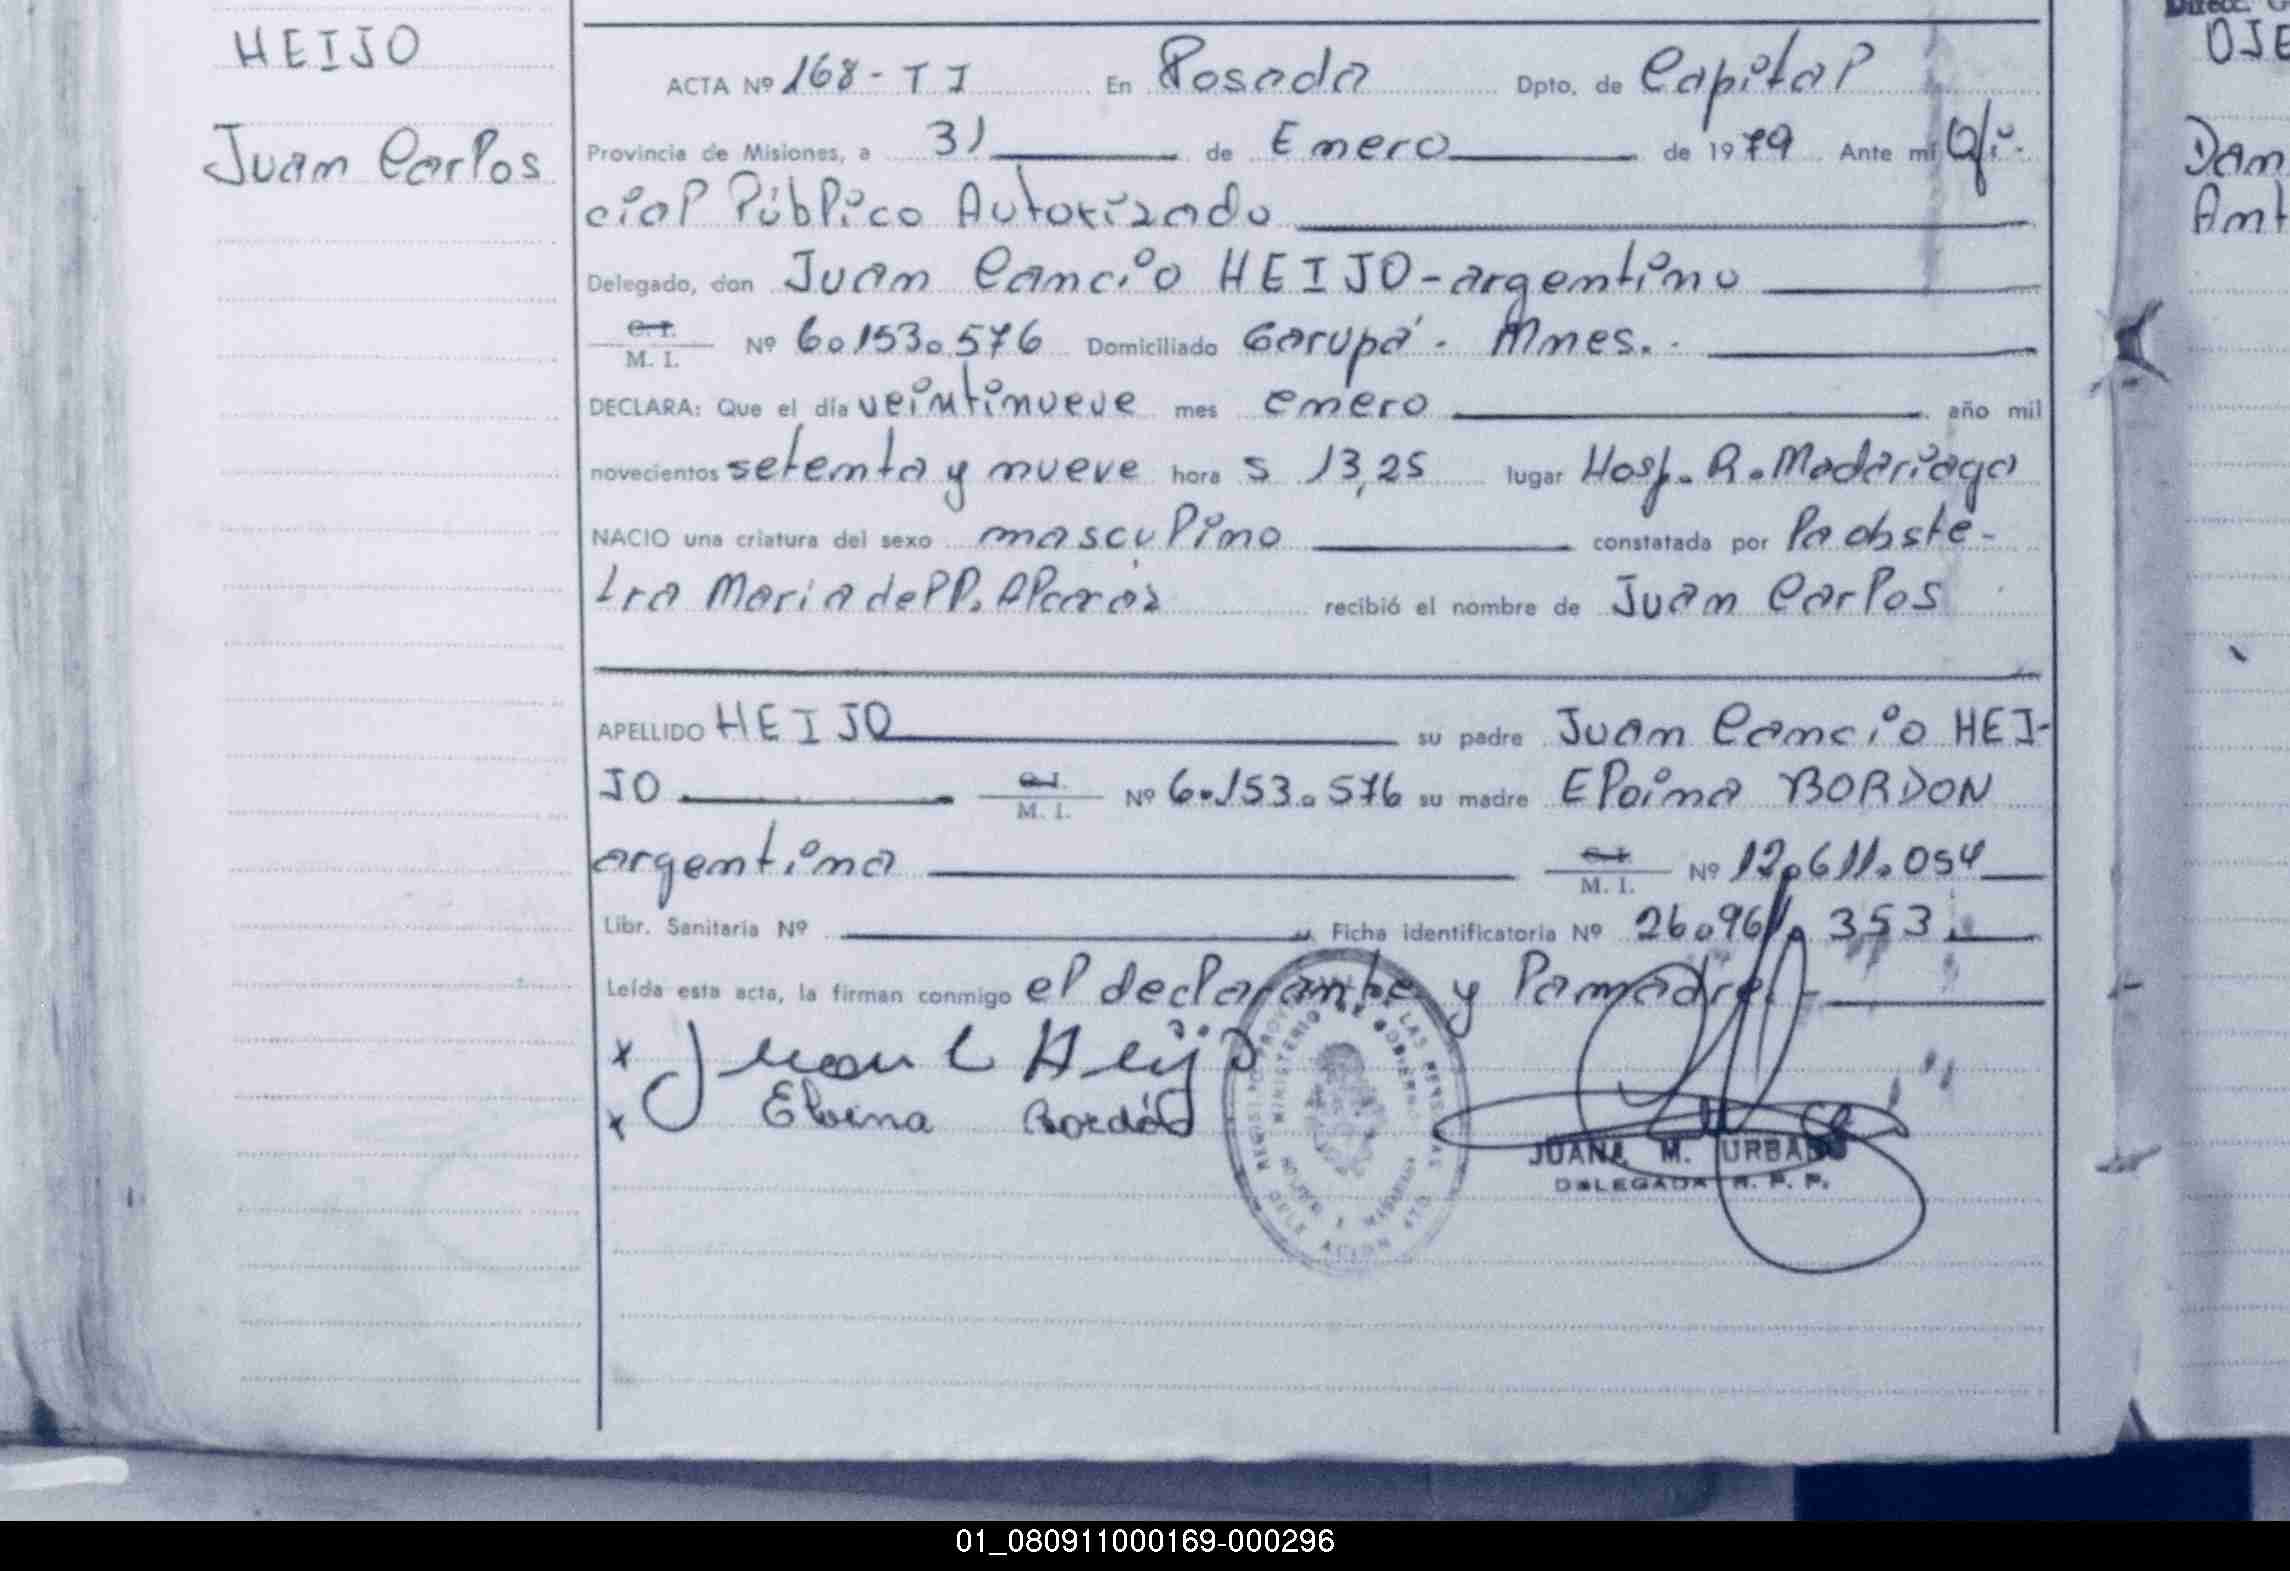 HEIJO
Juan Carlos
ACTA Nº 168 - T I En Posada Dpto. de Capital
Provincia de Misiones, a 31 de Enero de 1979 Ante mí Ofi-
cial Público Autorizado
Delegado, don Juan Cancio HEIJO - argentino
C. I.
M. I. Nº 6.153.576 Domiciliado Garupá - Mnes. -
DECLARA: Que el día veintinueve mes enero año mil
novecientos setenta y nueve hora s 13,25 lugar Hosp. R. Madariaga
NACIO una criatura del sexo masculino constatada por la obste-
tra Maria del P. Alcaráz recibió el nombre de Juan Carlos
APELLIDO HEIJO su padre Juan Cancio HEI-
JO C. I.
M. I. Nº 6.153.576 su madre Eloina BORDON
argentina C. I.
M. I. Nº 12.611.054
Libr. Sanitaria Nº Ficha identificatoria Nº 26.961.353
Leída esta acta, la firman conmigo el declarante y la madre. -
x Juan C Heijo
x Eloina Bordón
MINISTERIO DE GOBIERNO
JUANA M. URBAN
DELEGADA R. P. P.
OJE
Dan
Ant
01_080911000169-000296